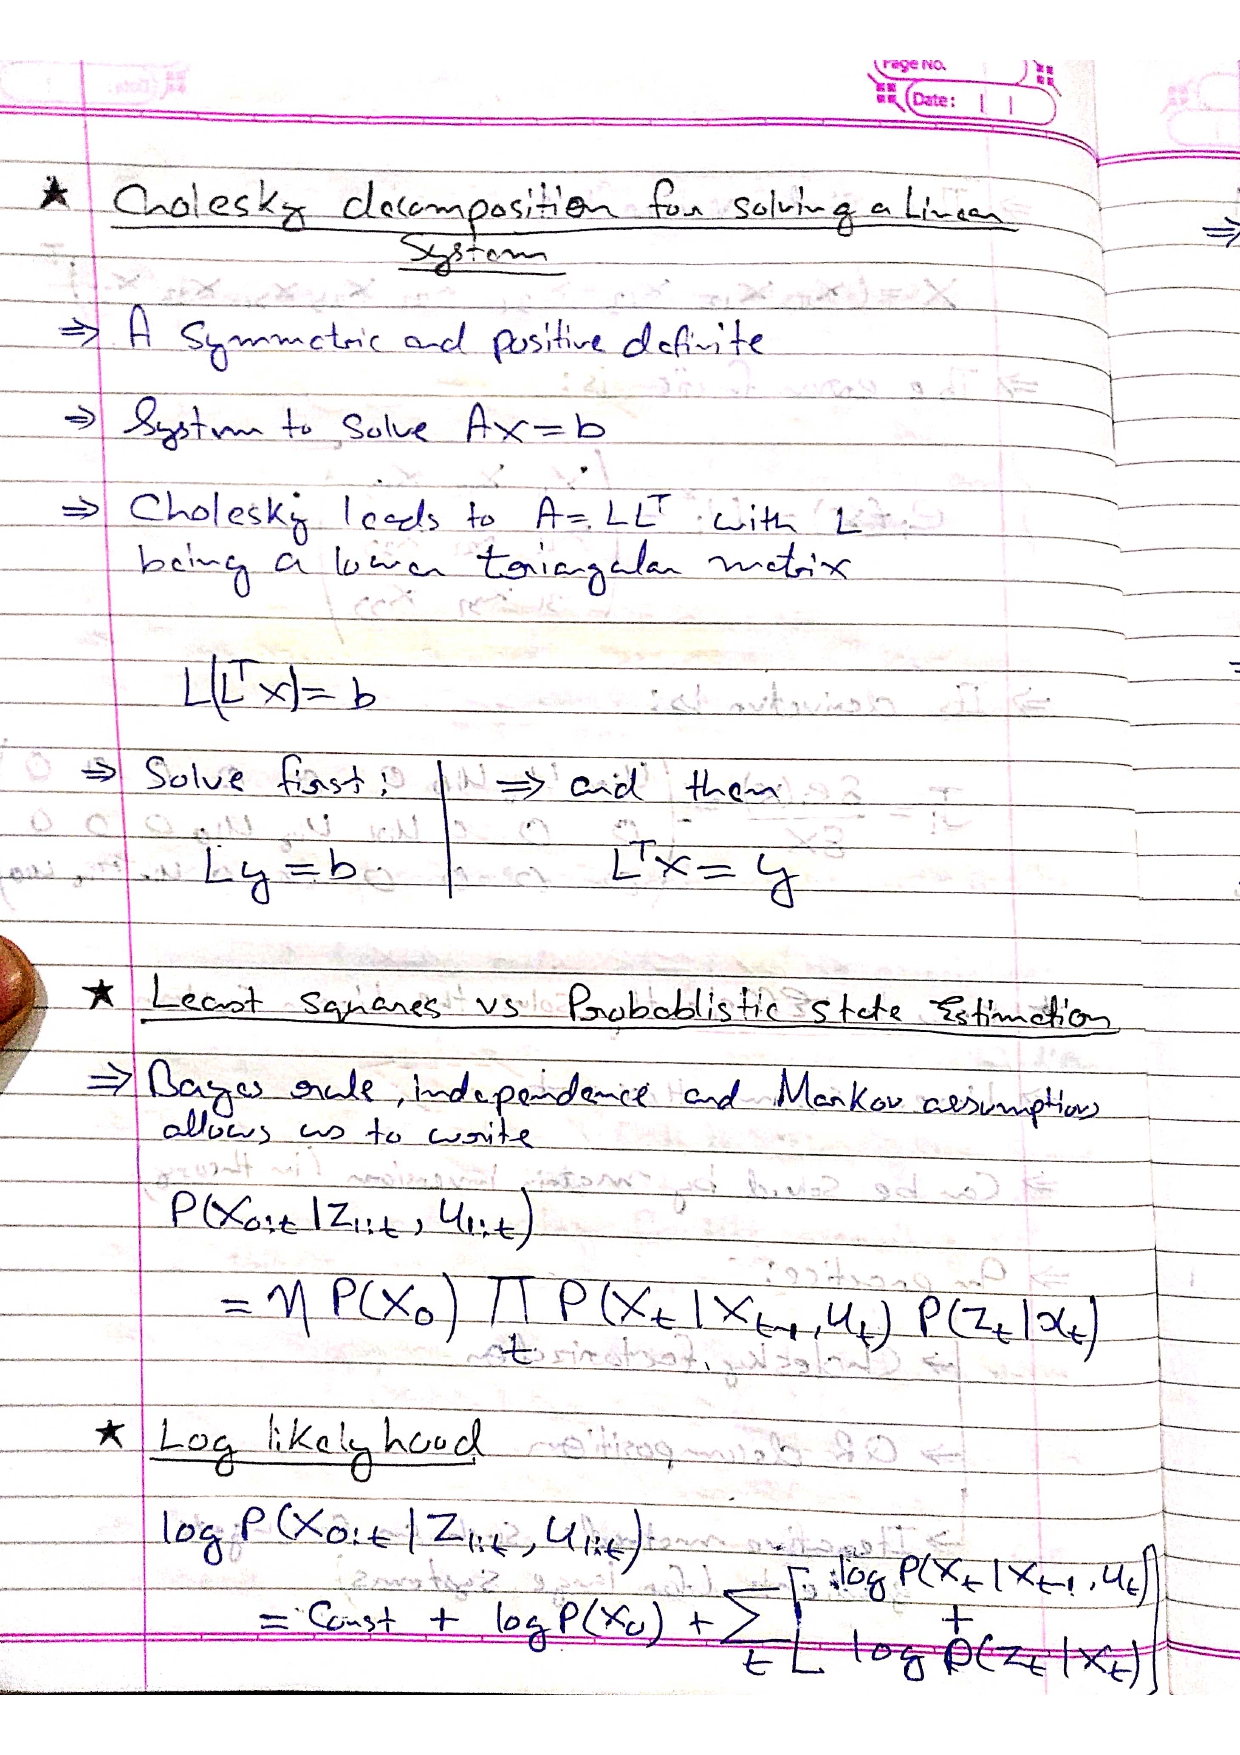 Page No.
Date:
★ Cholesky decomposition for solving a Linear
System
⇒ A Symmetric and positive definite
⇒ System to solve Ax = b
⇒ Cholesky leads to A = LLᵀ with L
being a lower triangular matrix
L(Lᵀx) = b
⇒ Solve first: | ⇒ and then
Ly = b | Lᵀx = y
★ Least squares vs Probablistic state Estimation
⇒ Bayes rule, independence and Markov assumptions
allows us to write
P(x₀:t | z₁:t, u₁:t)
= η P(x₀) ∏ₜ P(xₜ | xₜ₋₁, uₜ) P(zₜ | xₜ)
★ Log likelyhood
log P(x₀:t | z₁:t, u₁:t)
= Const + log P(x₀) + ∑ₜ [log P(xₜ | xₜ₋₁, uₜ) + log P(zₜ | xₜ)]